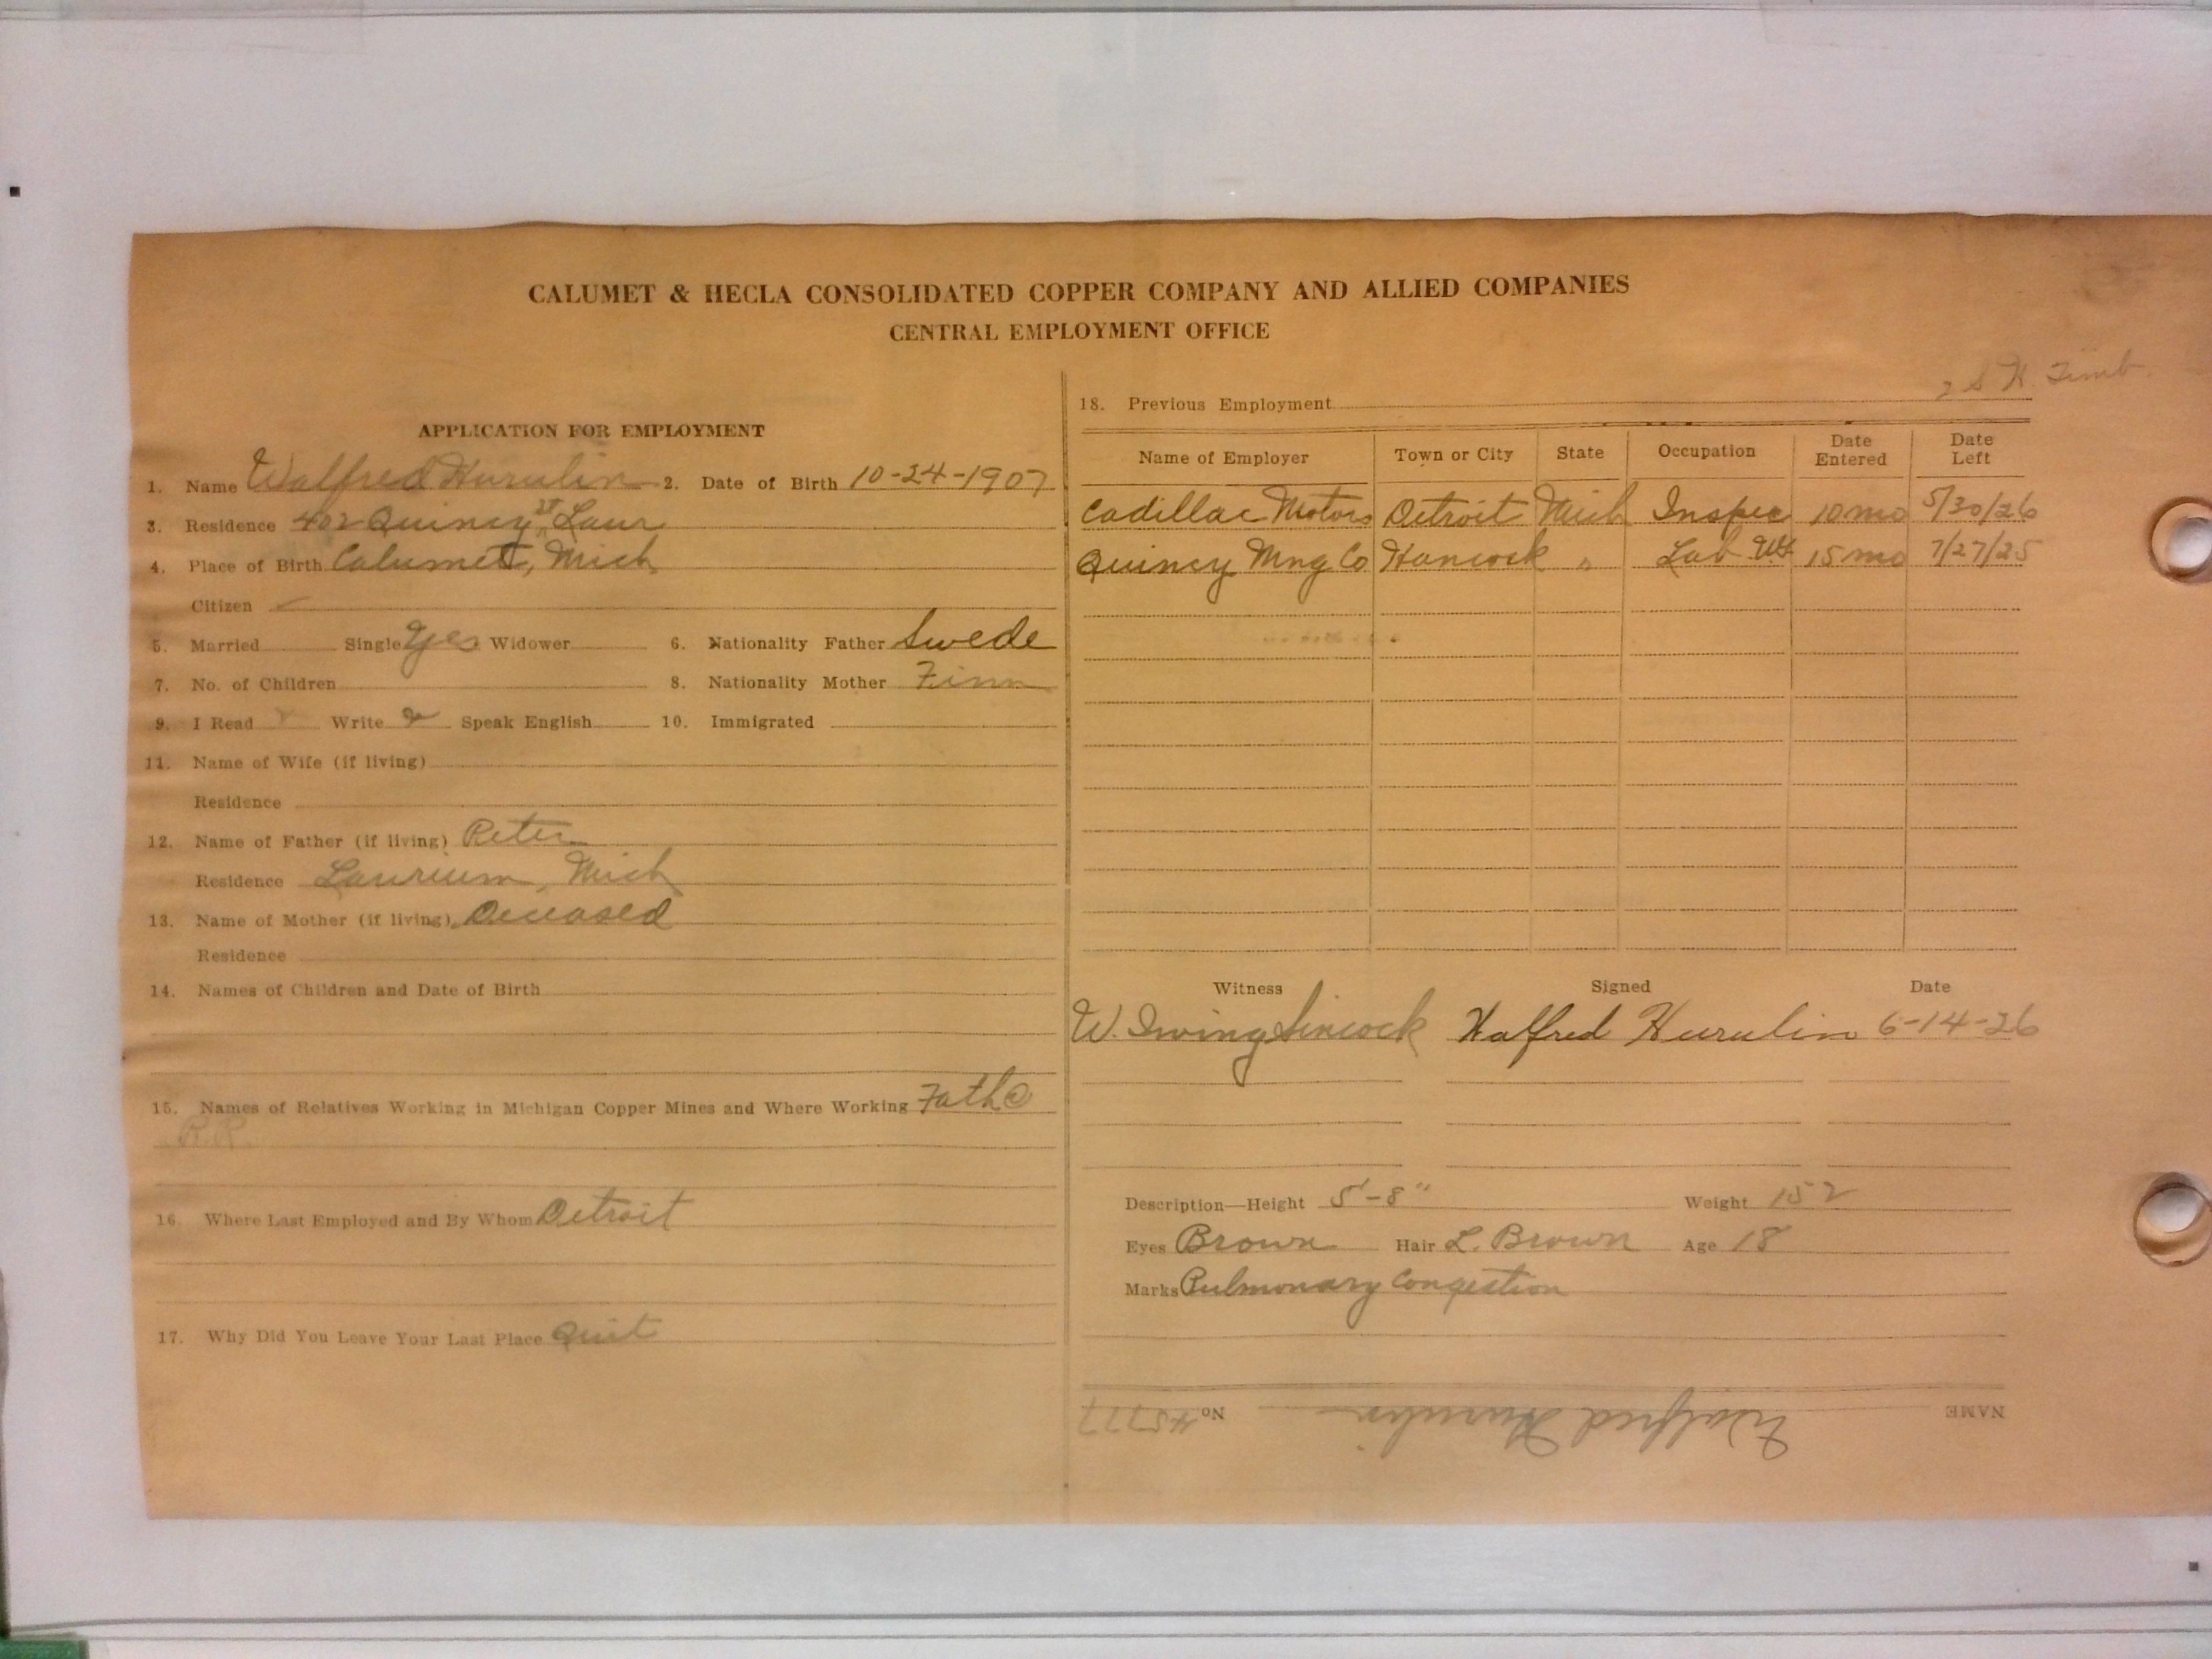 CALUMET & HECLA CONSOLIDATED COPPER COMPANY AND ALLIED COMPANIES
CENTRAL EMPLOYMENT OFFICE
APPLICATION FOR EMPLOYMENT
1. Name Walfred Hurulin 2. Date of Birth 10-24-1907
3. Residence 402 Quincy St Laur
4. Place of Birth Calumet, Mich
Citizen ✓
5. Married Single Yes Widower 6. Nationality Father Swede
7. No. of Children 8. Nationality Mother Finn
9. I Read Write Speak English 10. Immigrated
11. Name of Wife (if living)
Residence
12. Name of Father (if living) Peter
Residence Laurium, Mich
13. Name of Mother (if living) Deceased
Residence
14. Names of Children and Date of Birth
15. Names of Relatives Working in Michigan Copper Mines and Where Working Fath
R.R.
16. Where Last Employed and By Whom Detroit
17. Why Did You Leave Your Last Place Quit
18. Previous Employment
Name of Employer Town or City State Occupation Date Entered Date Left
Cadillac Motors Detroit Mich Inspec 10 mo 5/30/26
Quincy Mng Co Hancock " Lab 15 mo 7/27/25
Witness Signed Date
W. Irving Sincock Walfred Hurulin 6-14-26
Description—Height 5'-8" Weight 152
Eyes Brown Hair L. Brown Age 18
Marks Pulmonary Congestion
NAME Walfred Hurulin No. 45777